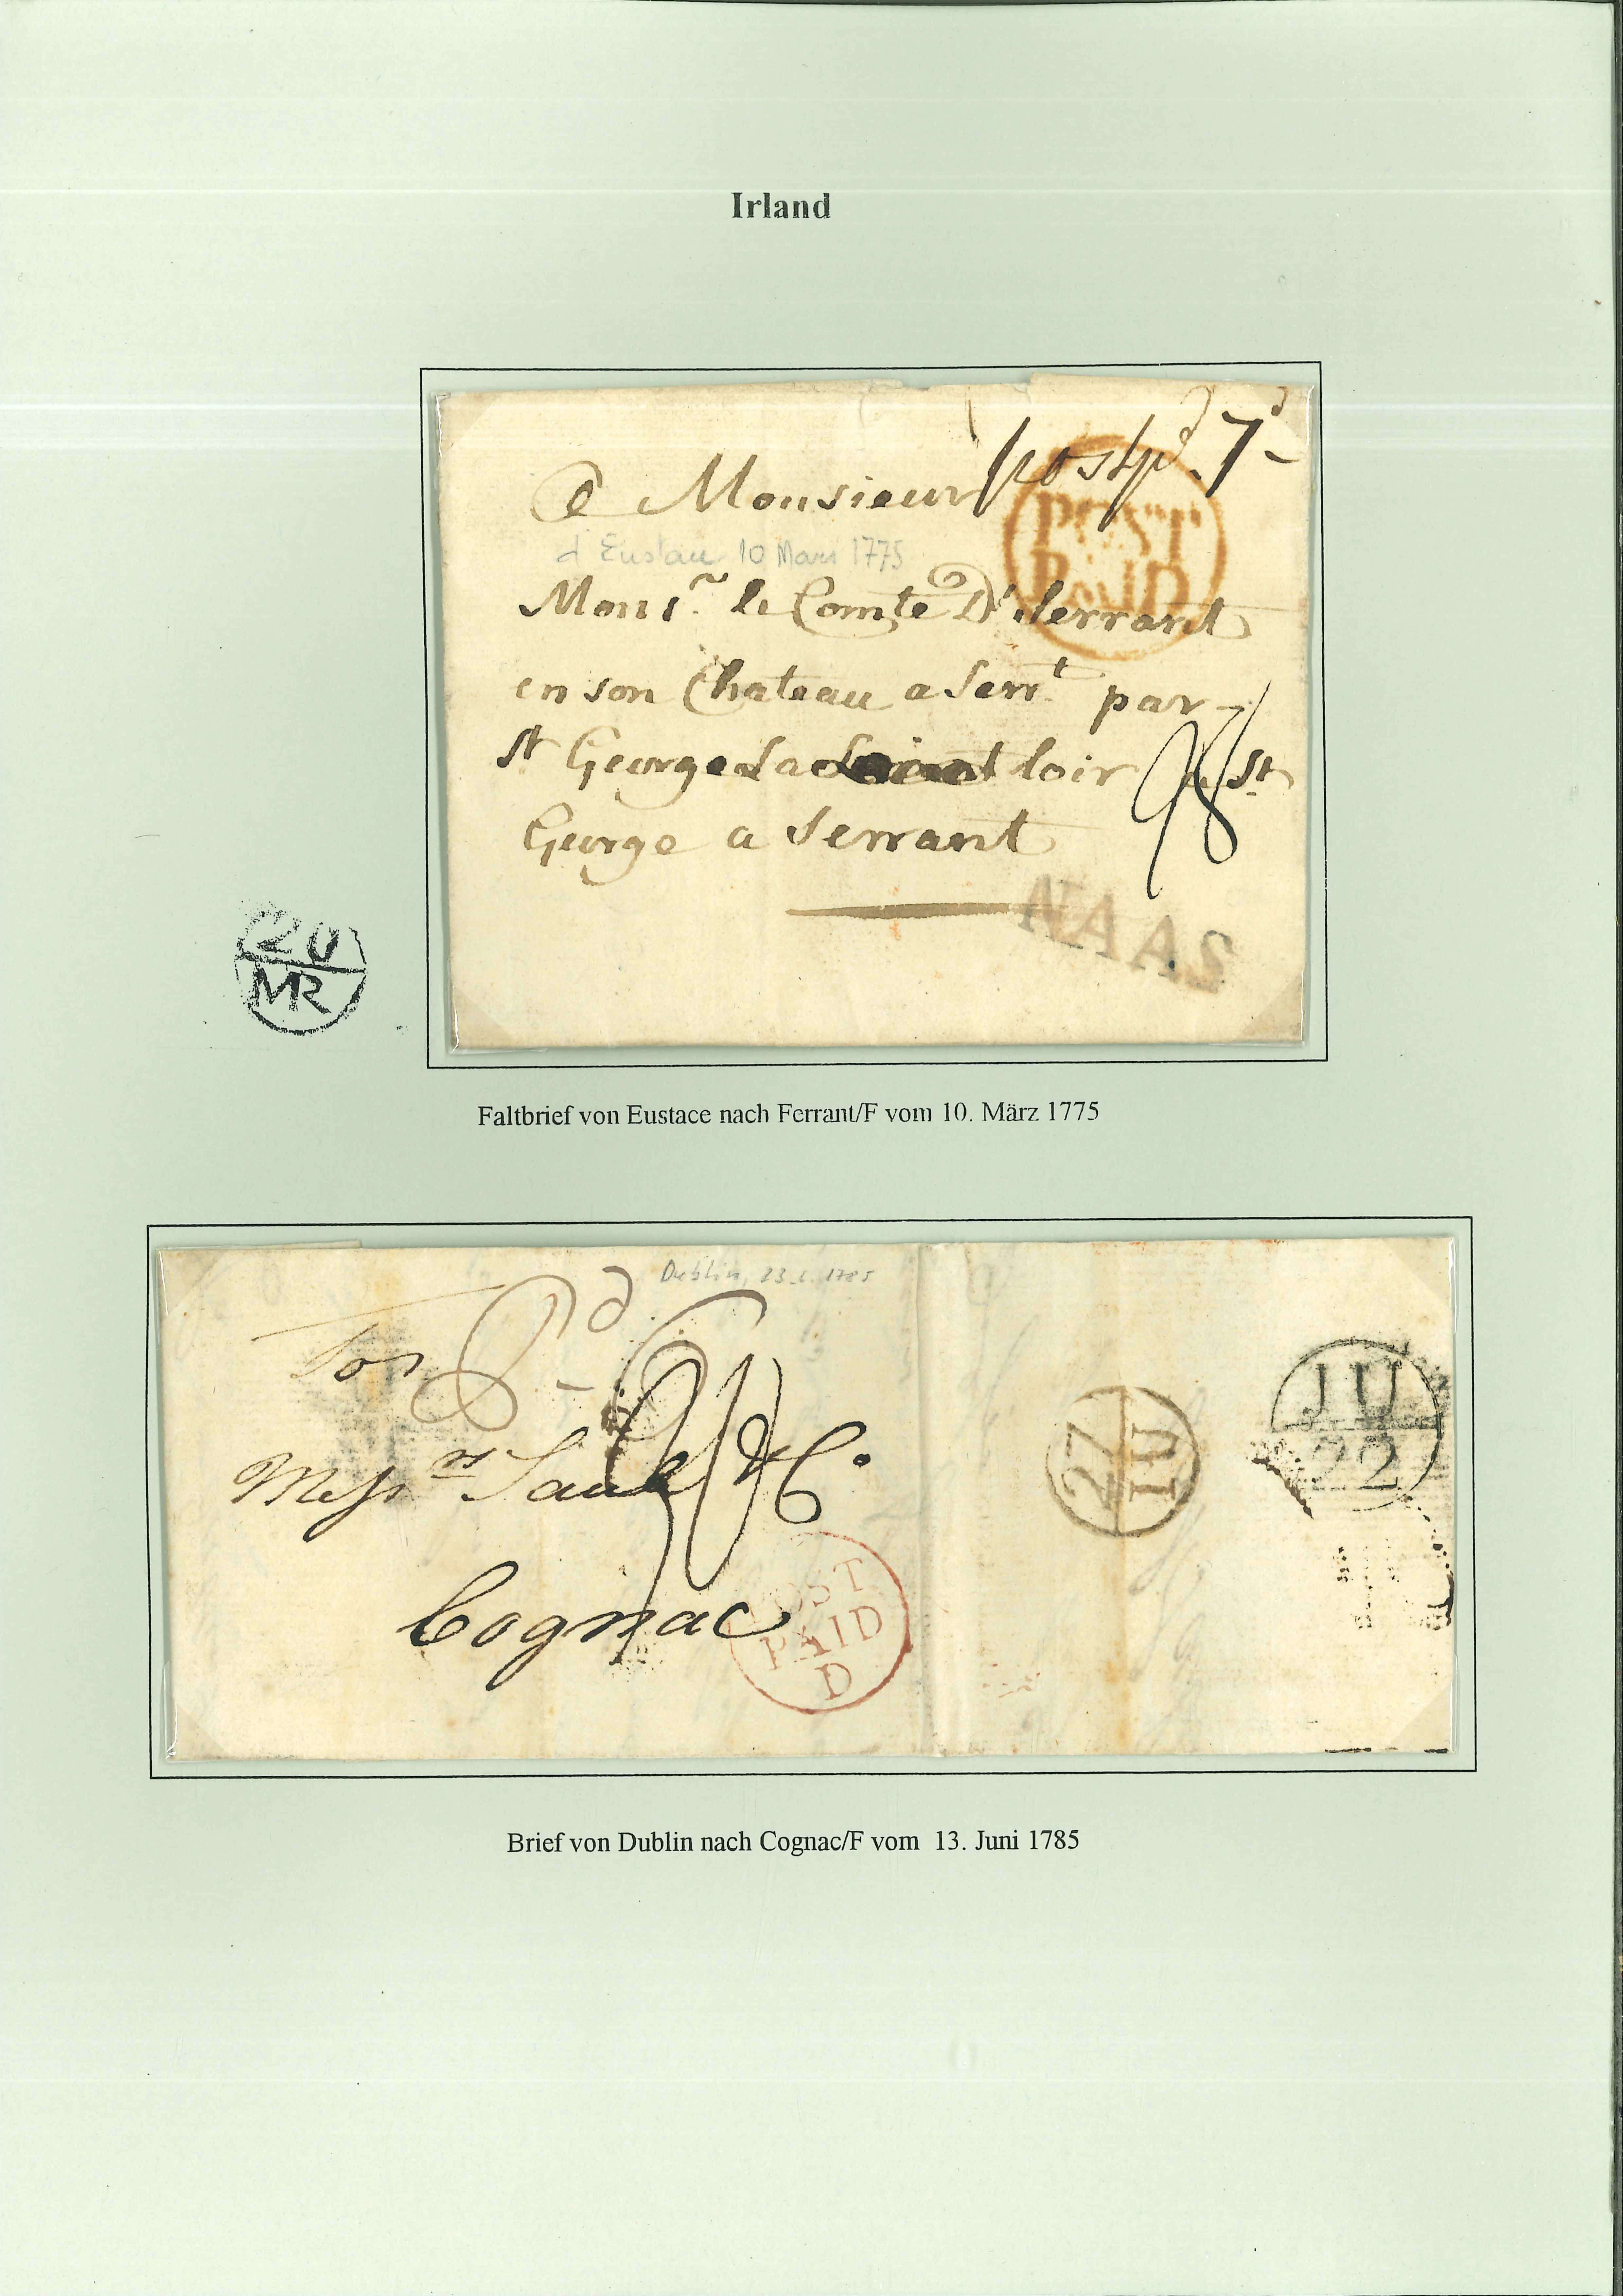 Irland
postpd. 7d
a Monsieur
POST
PAID
d Eustace 10 Mars 1775
Monsr. le Comte D'Serrant
en son Chateau a Serrt. par
St George La loir a St
George a Serrant
98
NAAS
20
MR
Faltbrief von Eustace nach Ferrant/F vom 10. März 1775
Dublin, 13. 6. 1785
Messrs Saule & Co.
Cognac
POST
PAID
D
27
IU
JU
22
Brief von Dublin nach Cognac/F vom 13. Juni 1785